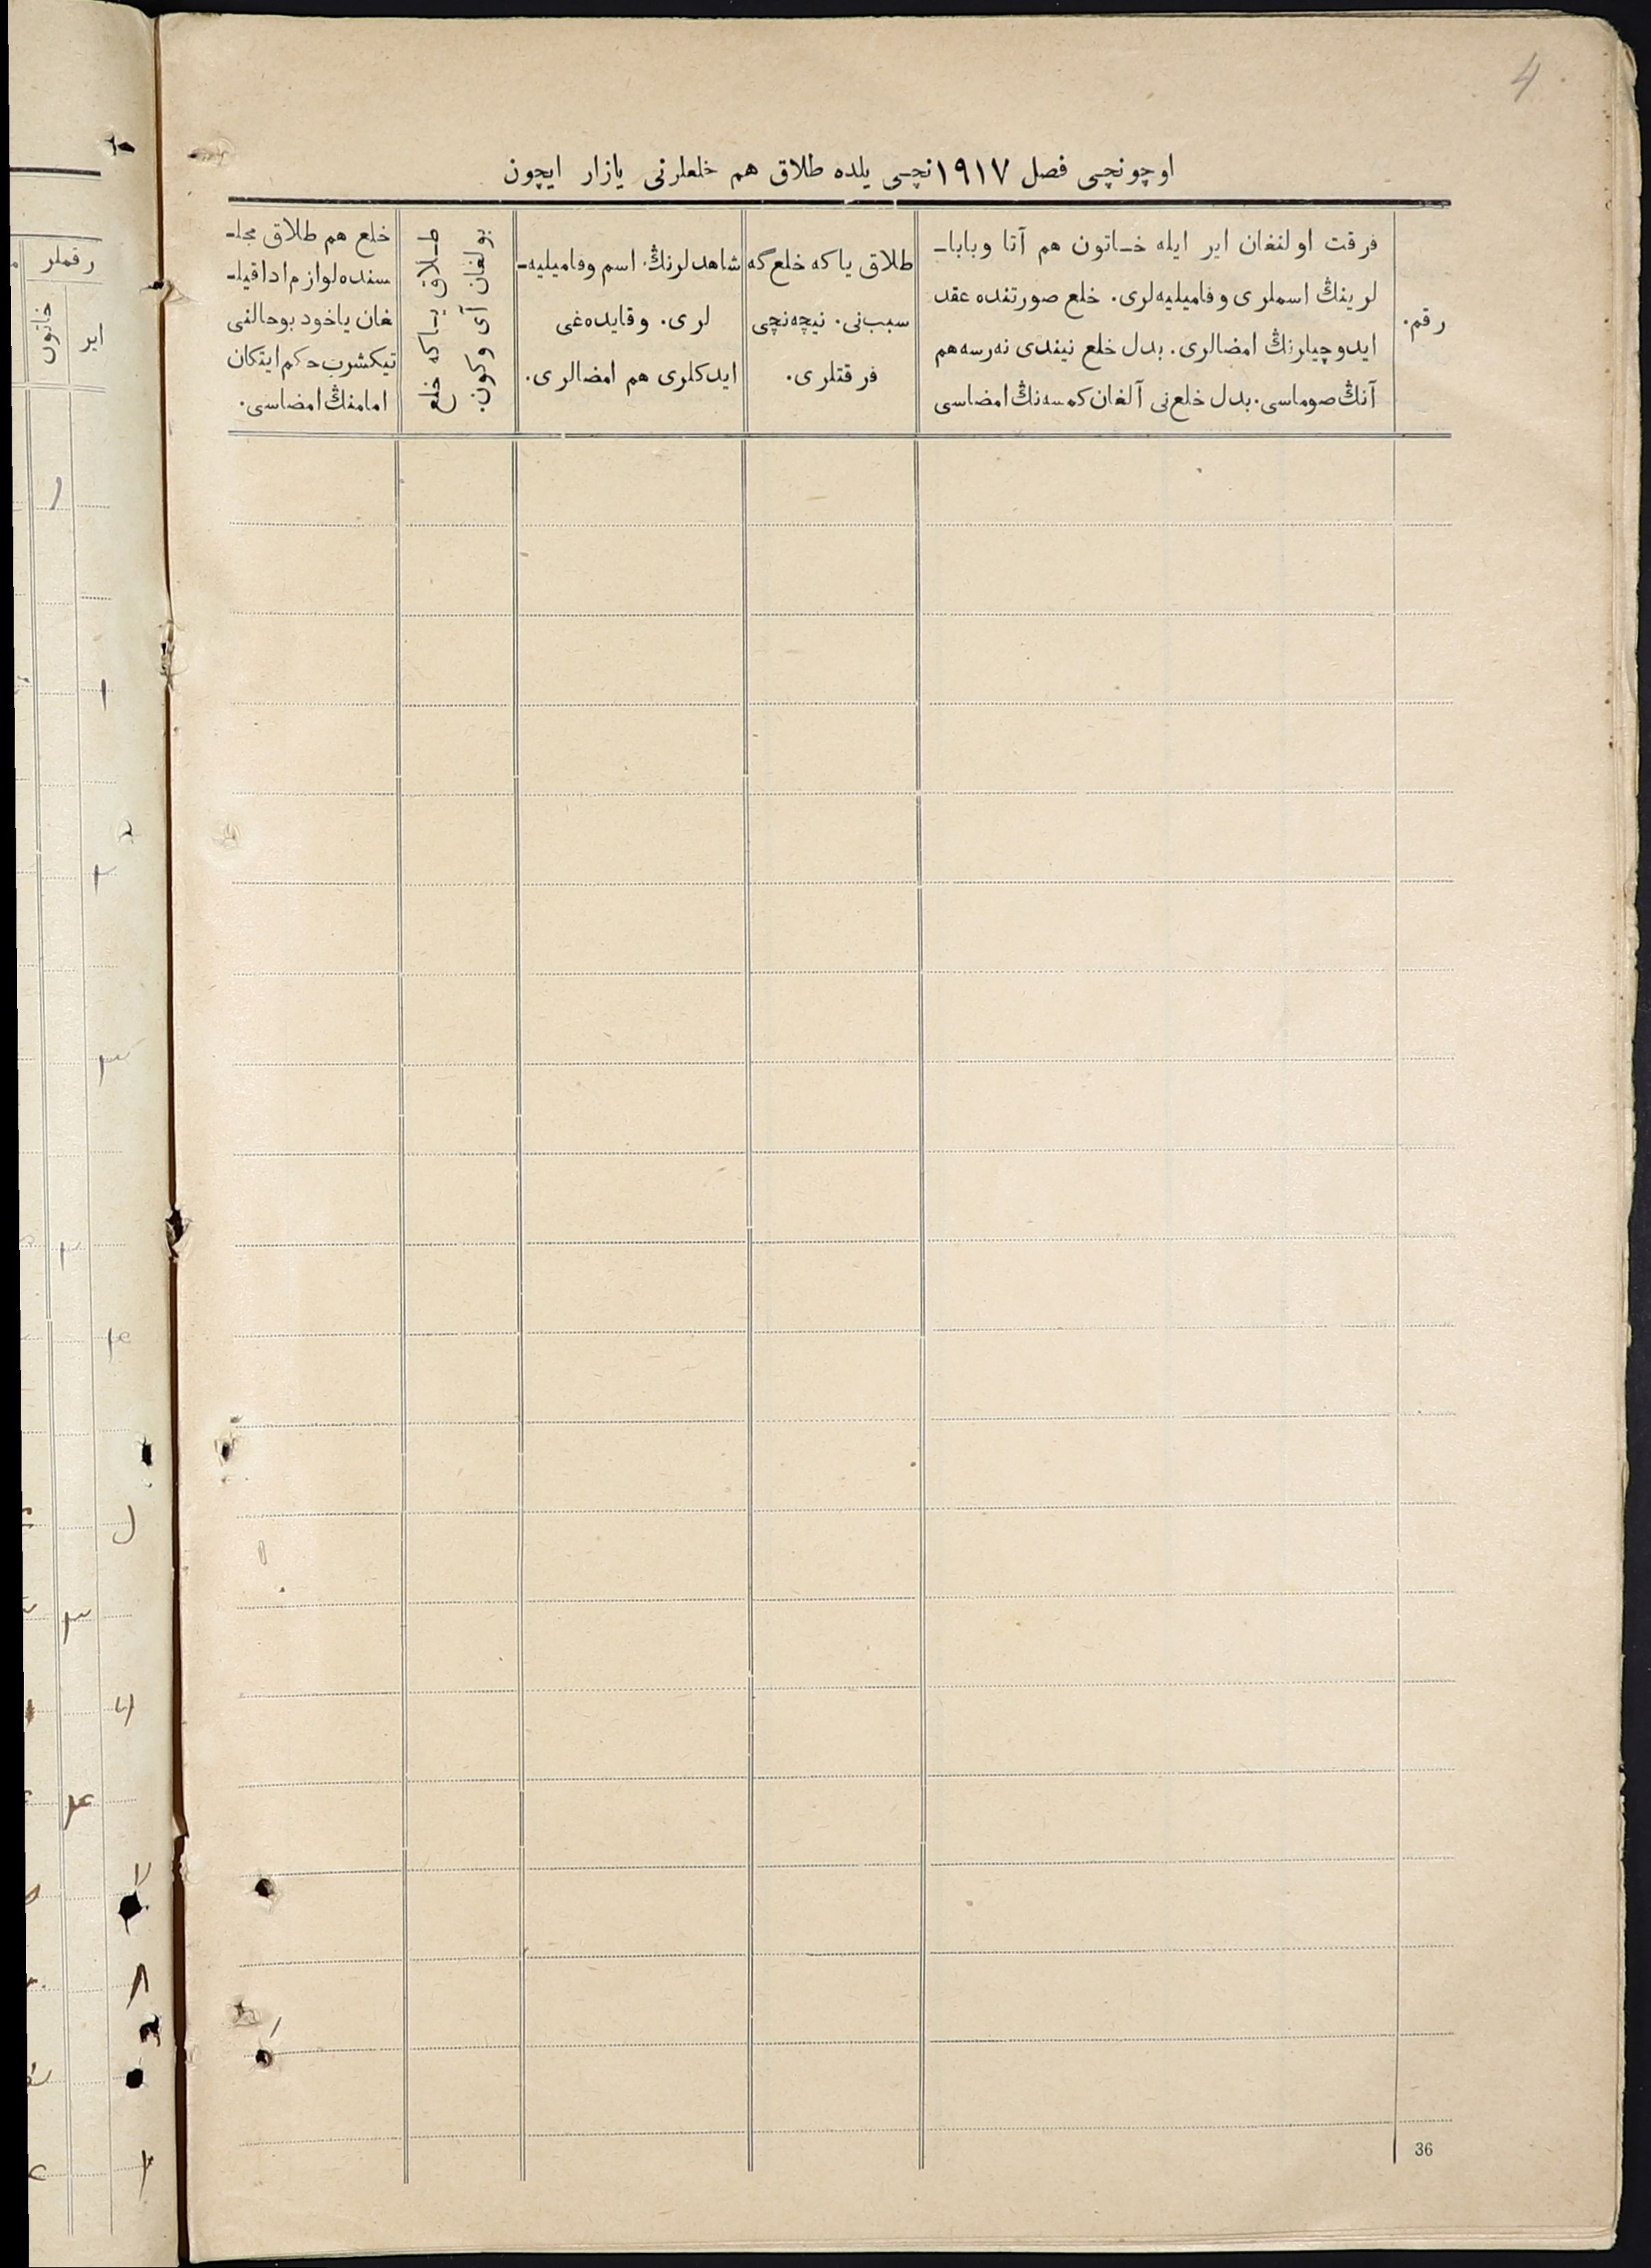 4
اوچونچى فصل ١٩١٧نچى يلده طلاق هم خلعلرنى يازار ايچون
رقم.
فرقت اولنغان اير ايله خـاتون هم آتا وبابا-
لرينڭ اسملرى وفاميليه‌لرى. خلع صورتنده عقد
ايدوچيلرنڭ امضالرى. بدل خلع نيندى نه‌رسه‌هم
آنڭ صوماسى. بدل خلع‌نى آلغان كمسه‌نڭ امضاسى
طلاق ياكه خلع‌گه
سبب‌نى. نيچه‌نچى
فرقتلرى.
شاهدلرنڭ. اسم وفاميليه-
لرى. وقايده‌غى
ايدكلرى هم امضالرى.
طـلاق يـاكه خلع
بولغان آى وكون.
خلع هم طلاق مجلـ
سنده‌لوازم‌اداقيلـ
غان ياخود بوحالنى
تيكشرب حكم ايتكان
امامنڭ امضاسى.
رقملر
اير
خاتون
36